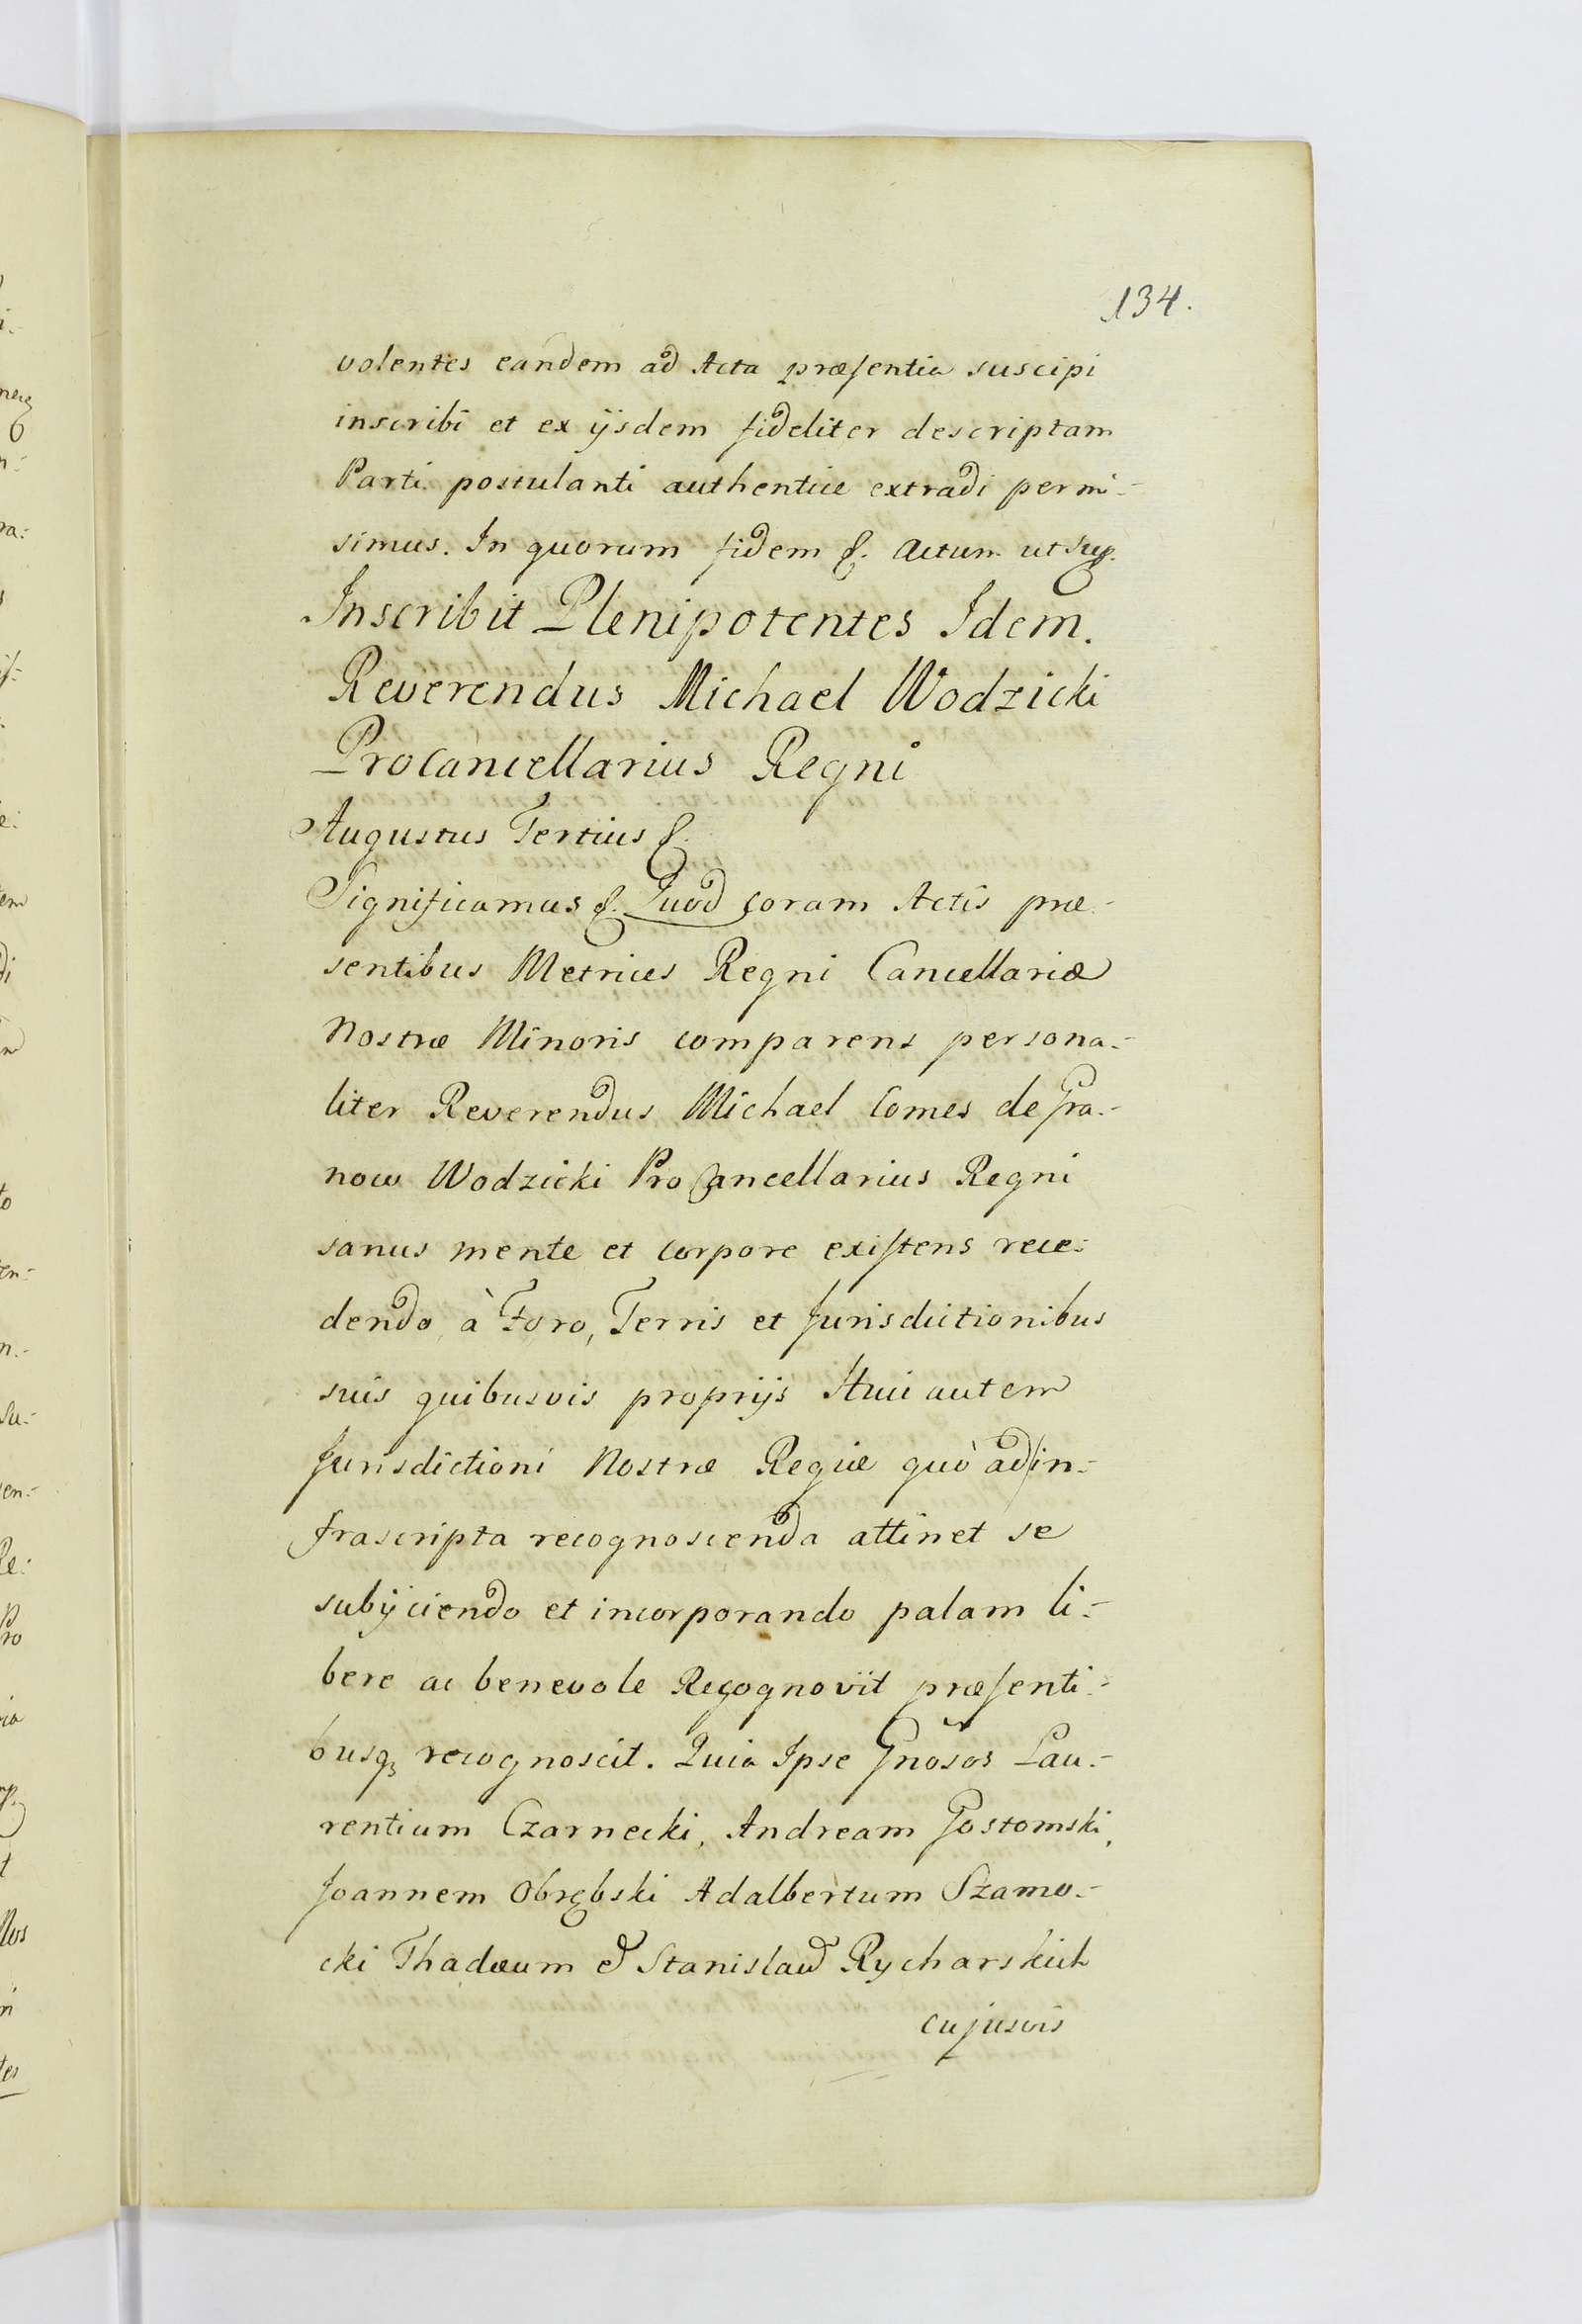 134.
volentes eandem ad Acta præsentia suscipi
inscribi et ex ijsdem fideliter descriptam
Parti postulanti authentice extradi permi-
simus. In quorum fidem &. Actum ut sup.
Inscribit Plenipotentes Idem.
Reverendus Michael Wodzicki
ProCancellarius Regni
Augustus Tertius &.
Significamus &. Quod coram Actis præ-
sentibus Metrices Regni Cancellariæ
Nostræ Minoris comparens persona-
liter Reverendus Michael Comes de Gra-
now Wodzicki ProCancellarius Regni
sanus mente et corpore existens rece-
dendo à Foro, Terris et Jurisdictionibus
suis quibusvis proprijs Huic autem
Jurisdictioni Nostræ Regiæ quò ad in-
frascripta recognoscenda attinet se
subijciendo et incorporando palam li-
bere ac benevole Recognovit præsenti-
busq recognoscit. Quia Ipse Gnosos Lau-
rentium Czarnecki, Andream Gostomski,
Joannem Obrębski Adalbertum Szamo-
cki Thadæum & Stanislaum Rycharskich
cujusvis